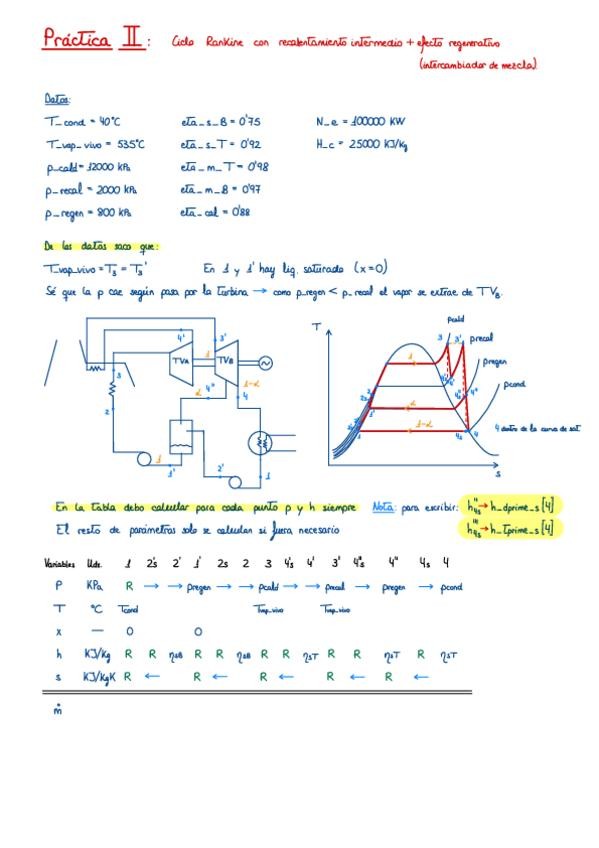 Práctica II: Ciclo Rankine con recalentamiento intermedio + efecto regenerativo
(intercambiador de mezcla)
Datos:
T_cond = 40°C eta_s_B = 0'75 N_e = 100000 KW
T_vap_vivo = 535°C eta_s_T = 0'92 H_c = 25000 KJ/Kg
p_cald = 12000 kPa eta_m_T = 0'98
p_recal = 2000 kPa eta_m_B = 0'97
p_regen = 800 kPa eta_cal = 0'88
De los datos saco que:
T_vap_vivo = T3 = T3' En 1 y 1' hay liq. saturado (x=0)
Sé que la p cae según pasa por la turbina → como p_regen < p_recal el vapor se extrae de TVB.
3 4' TVA 1 TVB 3'
4'' α 1-α 4
2 1' 2' 1
T pcald
3 3' precal
pregen
pcond
1
α
1-α
4s 4 4 dentro de la curva de sat
s
En la tabla debo calcular para cada punto p y h siempre Nota: para escribir: h4s'' → h_dprime_s[4]
El resto de parámetros solo se calculan si fuera necesario h4s''' → h_tprime_s[4]
Variables Uds. 1 2's 2' 1' 2s 2 3 4's 4' 3' 4''s 4'' 4s 4
P KPa R → → pregen → → pcald → → precal → pregen → pcond
T °C Tcond Tvap_vivo Tvap_vivo
x — 0 0
h KJ/Kg R R ηsB R R ηsB R R ηsT R R ηsT R ηsT
s KJ/KgK R ← R ← R ← R ← R ←
ṁ